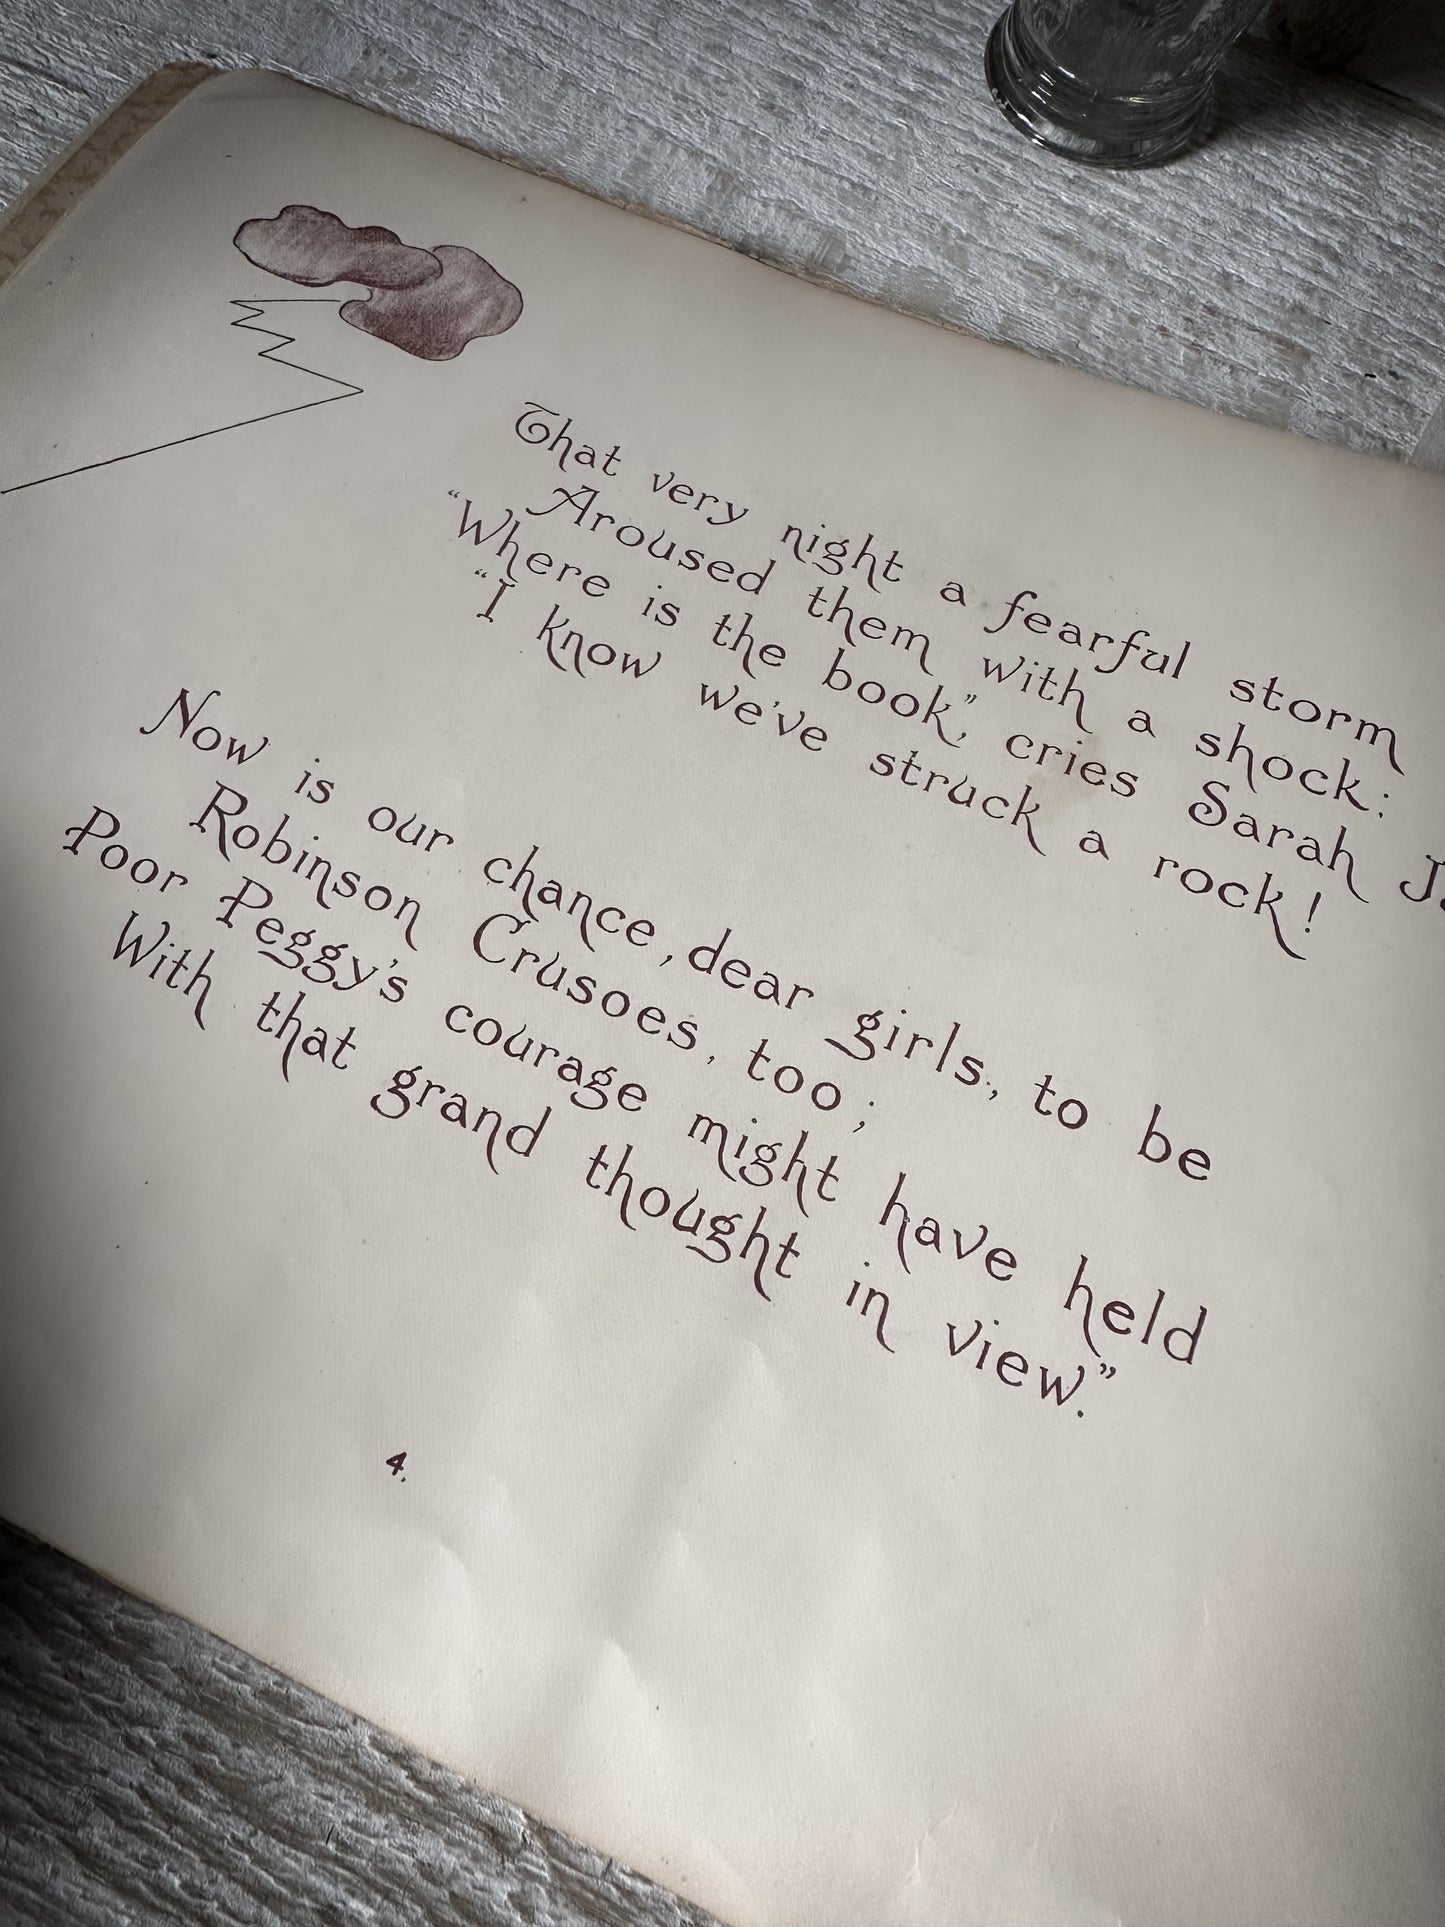 That very night a fearful storm
Aroused them with a shock:
“Where is the book,” cries Sarah
“I know we've struck a rock!
Now is our chance, dear girls, to be
Robinson Crusoes, too;
Poor Peggy's courage might have held
With that grand thought in view.”
4.